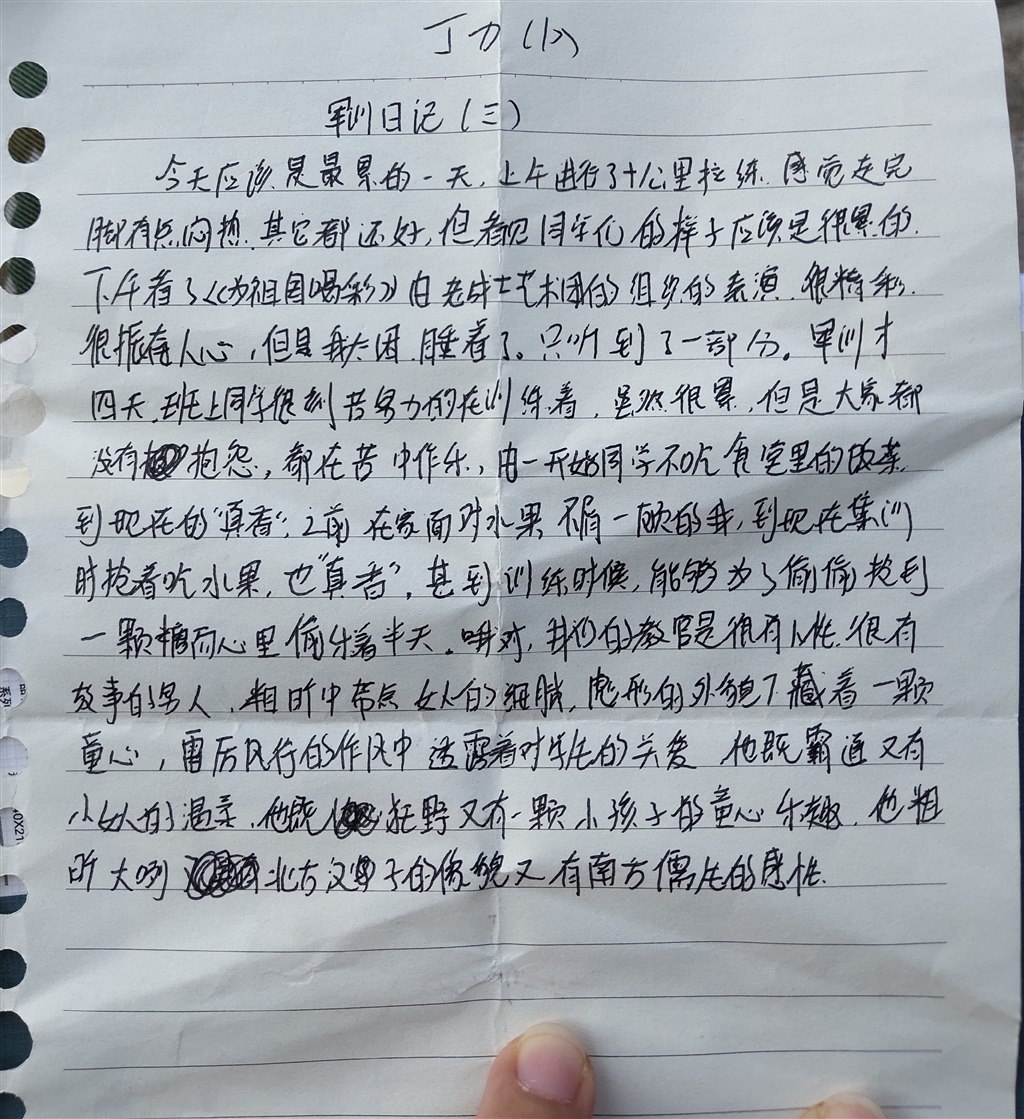 丁力(12)
军训日记(三)
今天应该是最累的一天,上午进行了十公里拉练.感觉走完
脚有点闷热.其它都还好,但看见同学们的样子应该是很累的.
下午看了《为祖国喝彩》由老战士艺术团的组织的表演.很精彩.
很振奋人心,但是我太困.睡着了。只听到了一部分。军训才
四天,班上同学很刻苦努力的在训练着,虽然很累,但是大家都
没有抱怨,都在苦中作乐,由一开始同学不吃食堂里的饭菜
到现在的"真香",之前在家面对水果不屑一顾的我,到现在集训
时抢着吃水果,也"真香",甚到训练时候,能够为了偷偷抢到
一颗糖而心里偷乐着半天。哦对,我们的教官是很有个性.很有
故事的男人,粗旷中带点女人的细腻,彪形的外貌下藏着一颗
童心,雷厉风行的作风中透露着对学生的关爱 他既霸道又有
小女人的温柔,他既狂野又有一颗小孩子的童心乐趣.他粗
旷大咧 北方汉子的像貌又有南方儒生的感性.